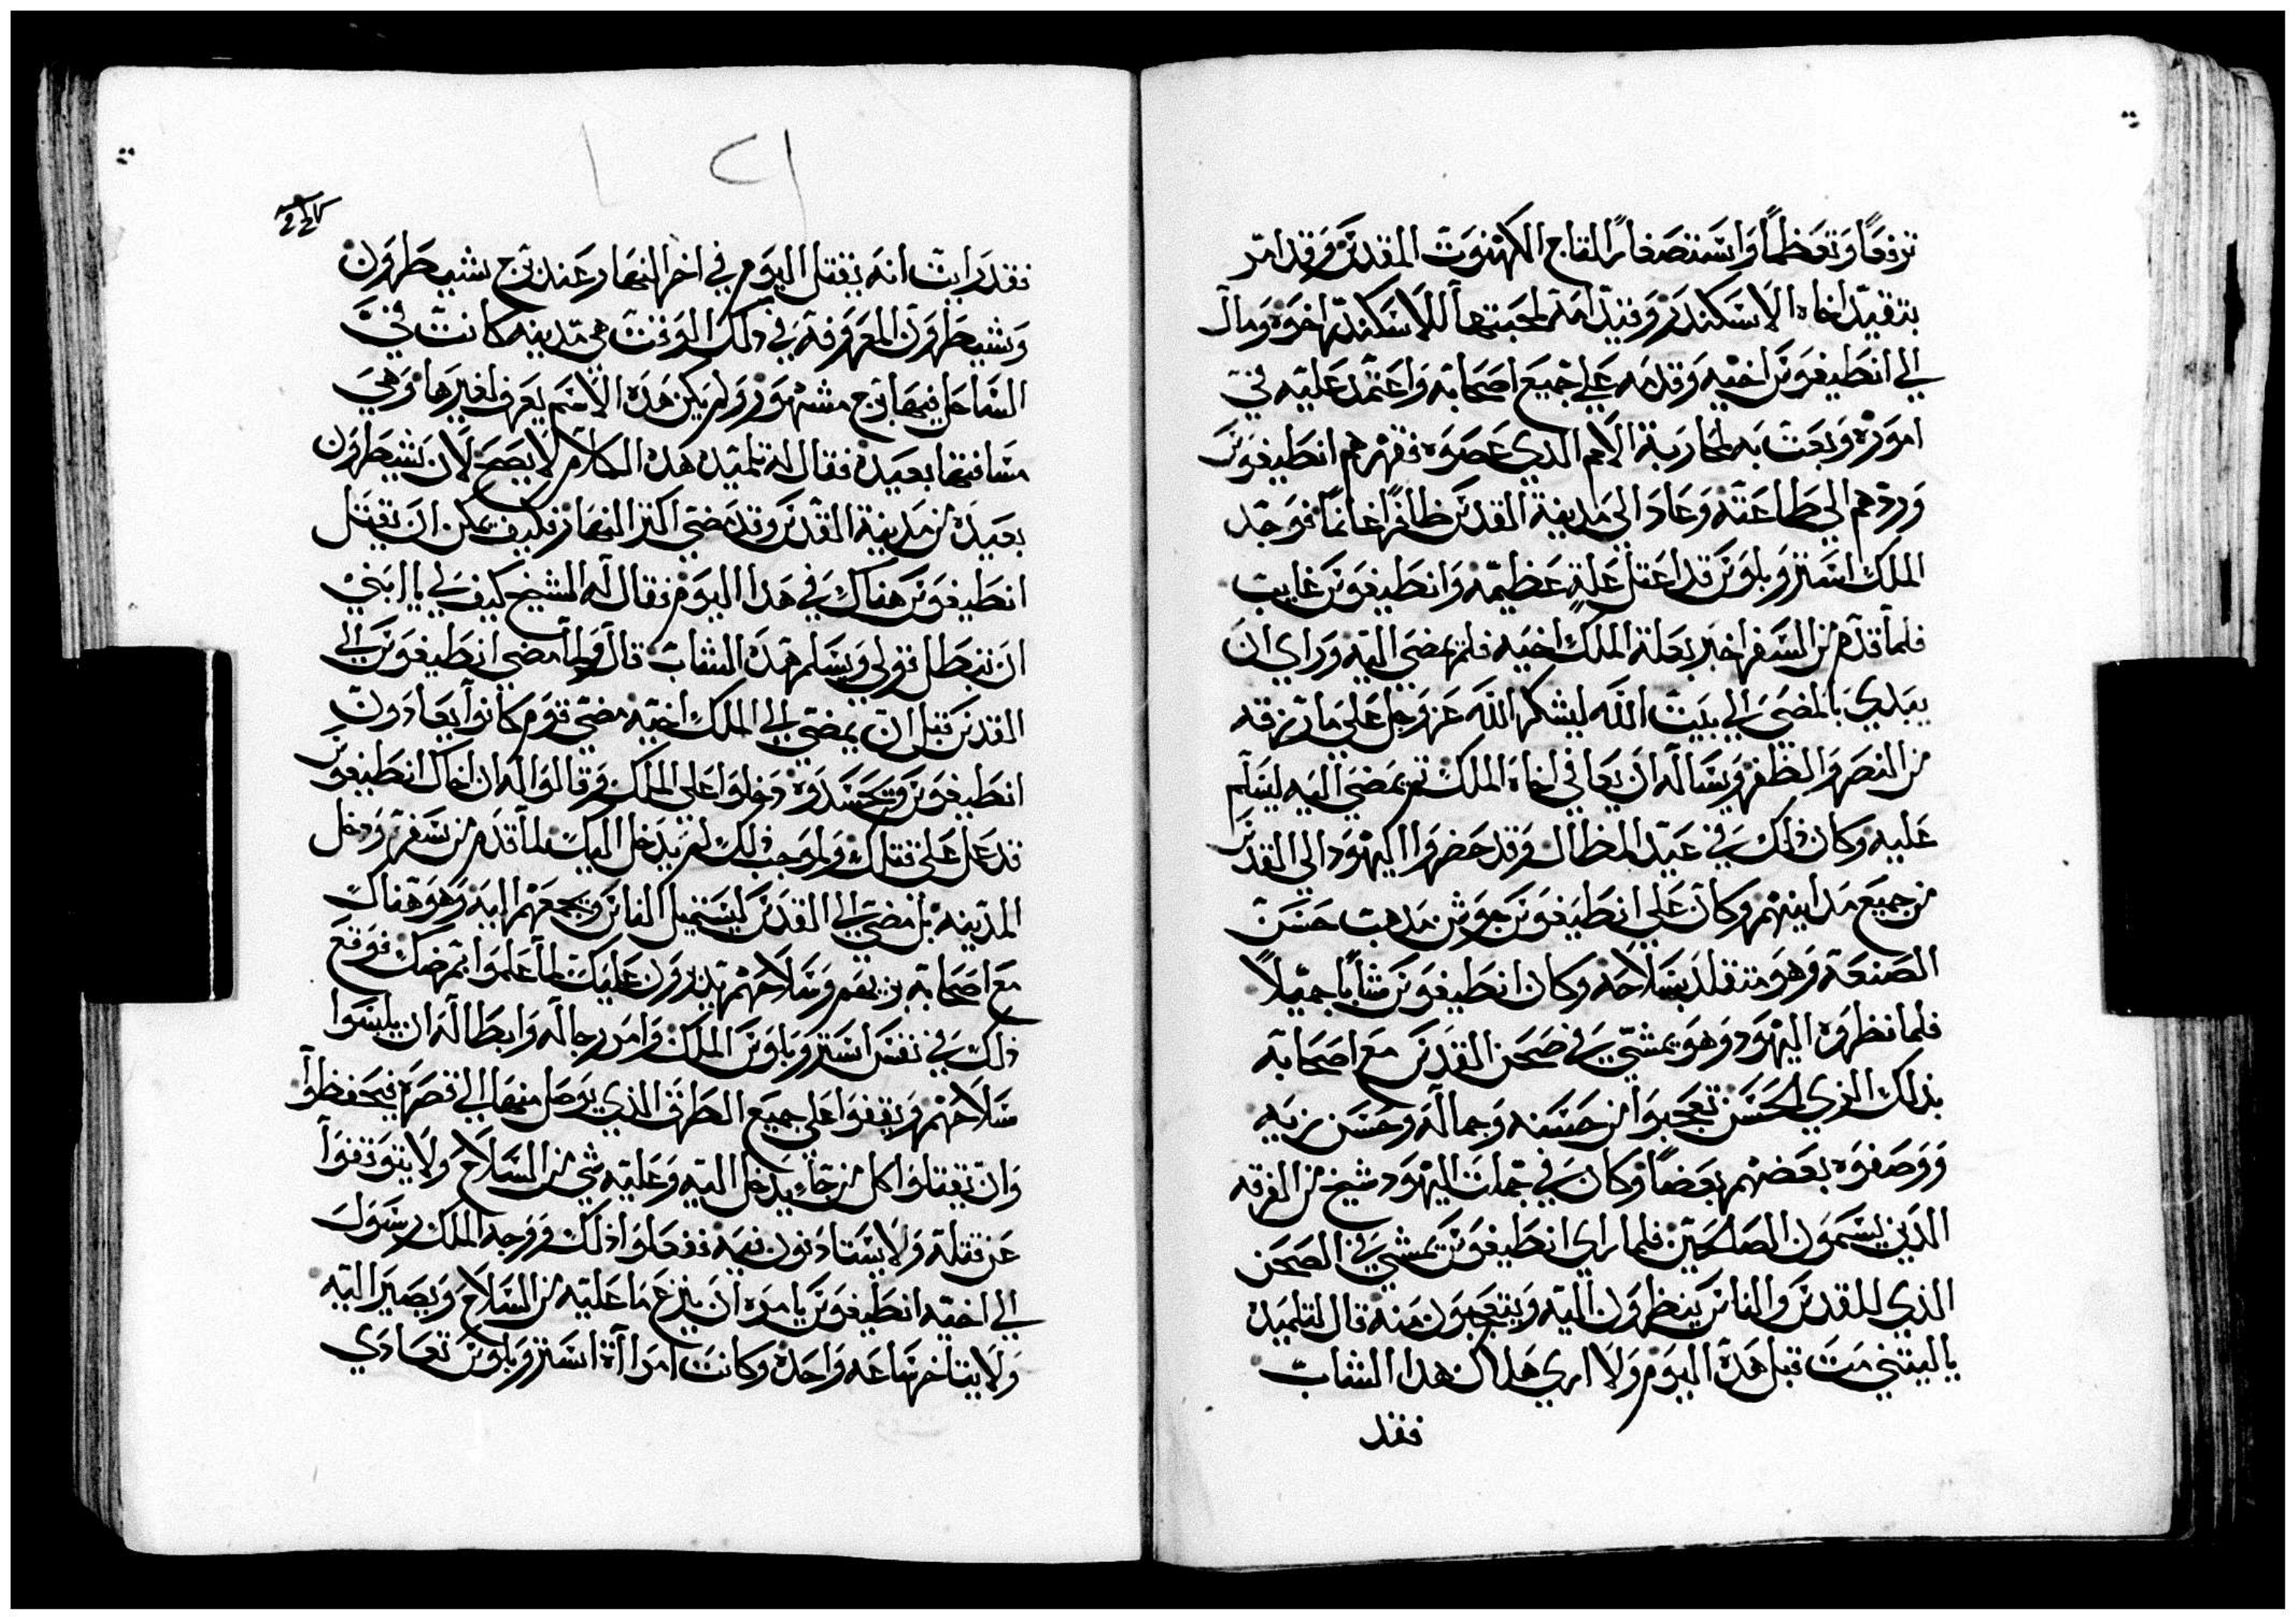 ترفعًا وتعظمًا واستصغارًا لتاج الكهنوت المقدس وقد امر
بتقيد اخاه الاسكندر وقيد امه لمحبتها للاسكندر اخوه ومال
الي انطيغونس اخيه وقدمه علي جميع اصحابه واعتمد عليه في
اموره وبعث به لمحاربة الامم الدي عصوه فقهرهم انطيغونس
وردهم الي طاعته وعاد الي مدينة القدس ظافرًا غانمًا فوجد
الملك استروبلونس قد اعتل علةٍ عظيمه وانطيغونس غايب
فلما قدم من السفر اخبر بعلة الملك اخيه فلم يمضي اليه وراي ان
يبدي بالمضي الي بيت الله ليشكر الله عز وجل علي ما رزقه
من النصر والظفر ويساله ان يعافي اخاه الملك تم يمضي اليه ليسلم
عليه وكان ذلك في عيد المظال وقد حضروا اليهود الي القدس
من جميع مداينهم وكان علي انطيغونس جوشن مدهب حسن
الصنعة وهو متقلد بسلاحه وكان انطيغونس شابًا جميلاً
فلما نظروه اليهود وهو يمشي في صحن القدس مع اصحابه
بدلك الزي الحسن تعجبوا من حسنه وجماله وحسن زيه
ووصفوه بعضهم بعضًا وكان في جملت اليهود شيخ من الفرقه
الدين يسمون الصالحين فلما راي انطيغونس يمشي في الصحن
الذي للقدس والناس ينظرون اليه ويتعجبون منه قال لتلميده
ياليتني مت قبل هدا اليوم ولا اري هلاك هدا الشاب
فقد
فقد رايت انه يقتل اليوم في اخر النهار عند برج شيطرون
وشيطرون المعروفه في دلك الوقت هي مدينه كانت في
الساحل فيها برج مشهور ولم يكن هده الاسم يعرف لغيرها وهي
مسافتها بعيدة فقال له تلميده هدا الكلام لا يصح لان شيطرون
بعيده من مدينة القدس وقد مضي اكتر النهار فكيف يمكن ان يقتل
انطيغونس هناك في هدا اليوم فقال له الشيخ كيف لي يا ابني
ان تبطل قولي ويسلم هدا الشاب قال ولما مضي انطيغونس الي
القدس قبل ان يمضي الي الملك اخيه مضي قوم كانوا يعادون
انطيغونس وتحسدوه دخلوا علي الملك وقالوا له ان اخاك انطيغونس
قد عمل علي قتلك ولموجب ذلك لم يدخل اليك لما قدم من سفره ودخل
المدينه بل مضي الي القدس ليستميل الناس ويجمعهم اليه وهو هناك
مع اصحابه بزيهم وسلاحهم يدبرون عليك لما علموا بمرضك فوقع
ذلك في نفس استروبلونس الملك وامر رجاله وابطاله ان يلبسوا
سلاحهم ويقفوا علي جميع الطرق الدي يوصل منها الي قصره فيحفظوا
وان يقتلوا كل من جاء يدخل اليه وعليه شي من السلاح ولا يتوقفوا
عن قتله ولا يستادنون فيه ففعلوا ذلك ووجه الملك رسول
الي اخيه انطيغونس يامره ان ينزع ما عليه من السلاح ويصير اليه
ولا يتاخر ساعه واحدة وكانت امراة استروبلونس تعادي